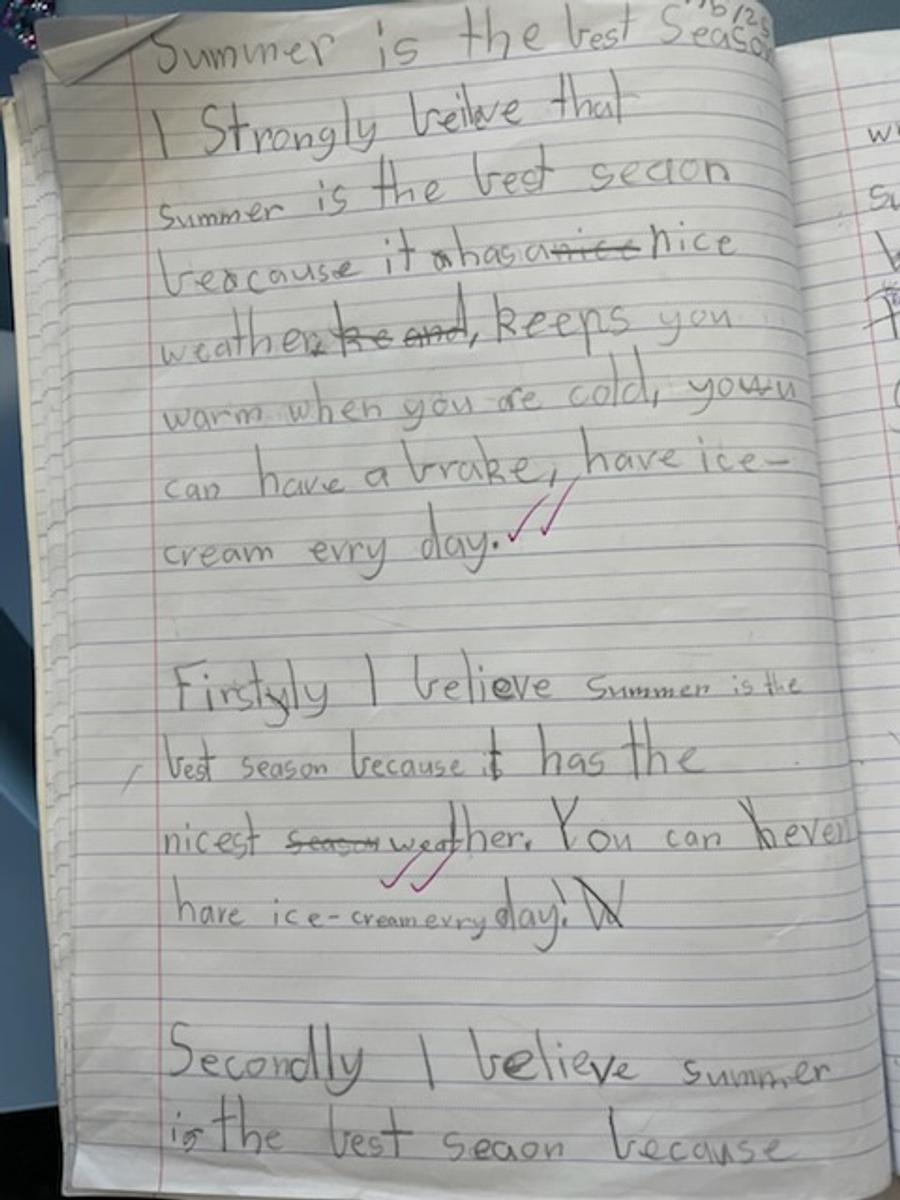 Summer is the best Season
I Strongly beileve that
summer is the best seaon
because it has a nice nice
weather, ke and, keeps you
warm when you are cold, you
can have a brake, have ice-
cream evry day.
Firstyly I believe summer is the
best season because it has the
nicest season weather. You can heven
have ice-cream evry day! W
Secondly I believe summer
is the best seaon because